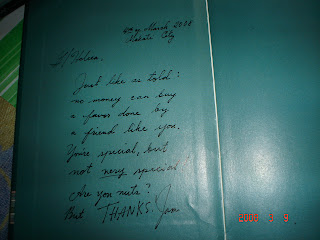 March 2008
Makati City
Just like as told:
no money can buy
a favor done by
a friend like you.
You're special, but
not very special!
Are you nuts?
But THANKS! Jam